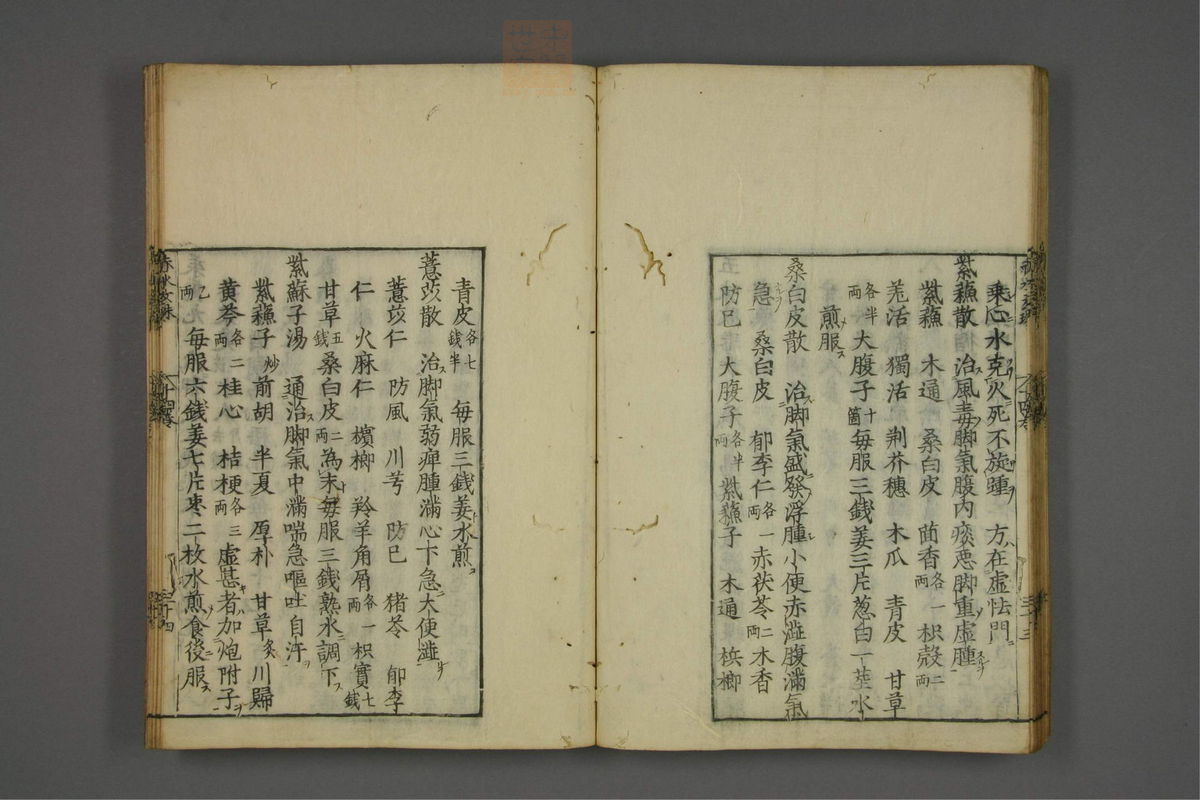 乗心水克火死不旋踵 方在虚怯門
紫蘓散 治風毒脚氣腹内痰悪脚重虚腫
紫蘓 木通 桑白皮 茴香各一両 枳殻二両
羗活 獨活 荆芥穗 木瓜 青皮 甘草
各半両 大腹子十箇 毎服三錢姜三片葱白一莖水
煎服
桑白皮散 治脚氣盛發浮腫小便赤澁腹滿氣
急 桑白皮 郁李仁各一両 赤茯苓二両 木香
防已 大腹子各半両 紫蘓子 木通 梹榔
青皮各七錢半 毎服三錢姜水煎
薏苡散 治脚氣弱痺腫滿心下急大便澁
薏苡仁 防風 川芎 防已 猪苓 郁李
仁 火麻仁 檳榔 羚羊角屑各一両 枳實七錢
甘草五錢 桑白皮二両 為末毎服三錢熟水調下
紫蘇子湯 通治脚氣中滿喘急嘔吐自汗
紫蘓子炒 前胡 半夏 厚朴 甘草炙 川歸
黄芩各二両 桂心 桔梗各三両 虚甚者加炮附子
乙両 毎服六錢姜七片枣二枚水煎食後服